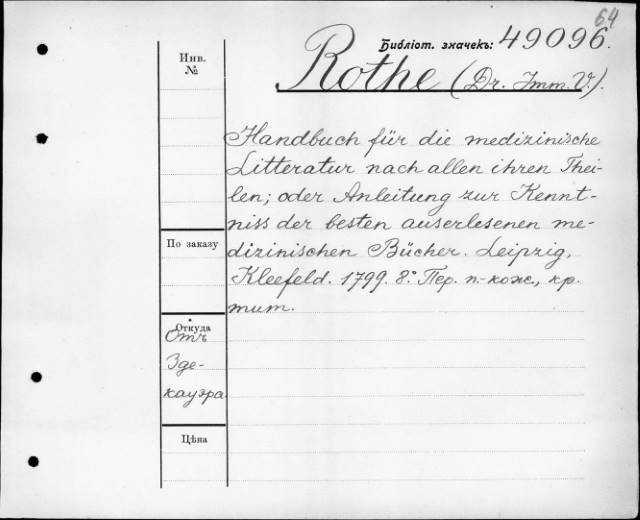 64
Библіот. значекъ: 49096.
Инв.
№
Rothe (Dr. Imm. V.).
Handbuch für die medizinische
Litteratur nach allen ihren Thei-
len; oder Anleitung zur Kennt-
niss der besten auserlesenen me-
По заказу
dizinischen Bücher. Leipzig,
Kleefeld. 1799. 8.° Пер. п.-кож., кр.
тит.
Откуда
Отъ
Зде-
кауэра
Цѣна